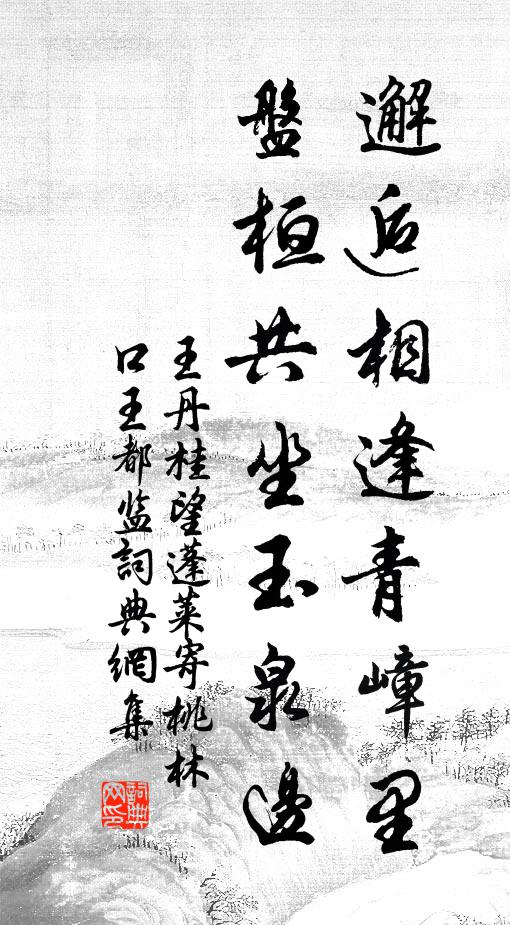 邂逅相逢青嶂里
盤桓共坐玉泉邊
王丹桂望蓬萊寄桃林
口王都监詞典網集
詞典
网印